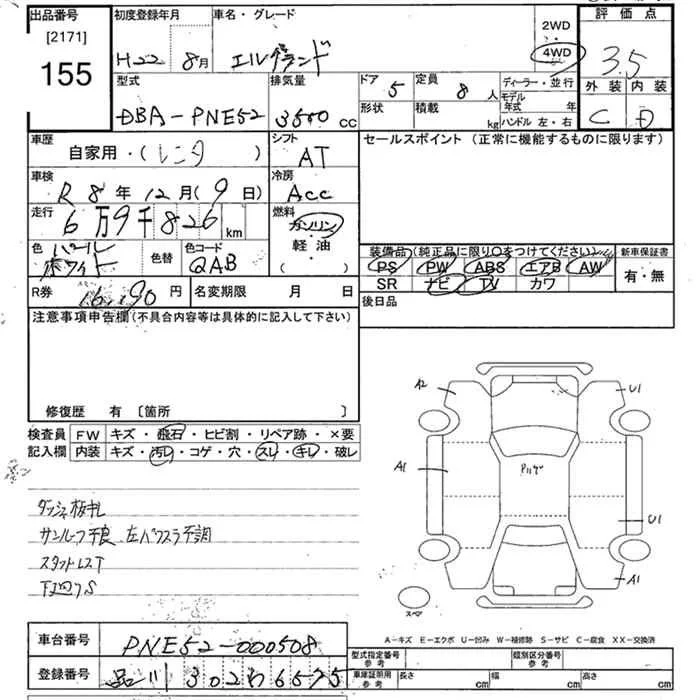 出品番号
[2171]
155
初度登録年月
H22年 8月
車名・グレード
エルグランド
2WD
・
4WD
評価点
3.5
外装 内装
C D
型式
DBA-PNE52
排気量
3500 CC
ドア
5
定員
8 人
形状
積載
kg
ディーラー・並行
モデル
年式 年
ハンドル 左・右
車歴
自家用・(レンタ )
シフト
AT
セールスポイント (正常に機能するものに限ります)
車検
R 8年 12月(9日)
冷房
Acc
走行
6万9千826 km
燃料
ガソリン
・
軽油
( )
色
パール
ホワイト
色替
色コード
QAB
装備品(純正品に限り○をつけてください)
PS PW ABS エアB AW
SR ナビ TV カワ
新車保証書
有・無
R券
円
名変期限 月 日
後日品
注意事項申告欄(不具合内容等は具体的に記入して下さい)
修復歴 有 〔箇所 〕
検査員
記入欄
FW キズ・飛石・ヒビ割・リペア跡・×要
内装 キズ・汚レ・コゲ・穴・スレ・キレ・破レ
サンルーフ不良 左パワスラ不調
下廻りS
A2
U1
A1
U1
A1
スペア
A-キズ E-エクボ U-凹み W-補修跡 S-サビ C-腐食 XX-交換済
車台番号
PNE52-000508
登録番号
品川 302 わ 6575
型式指定番号
参考
類別区分番号
参考
車庫証明用
参考
長さ cm
幅 cm
高さ cm